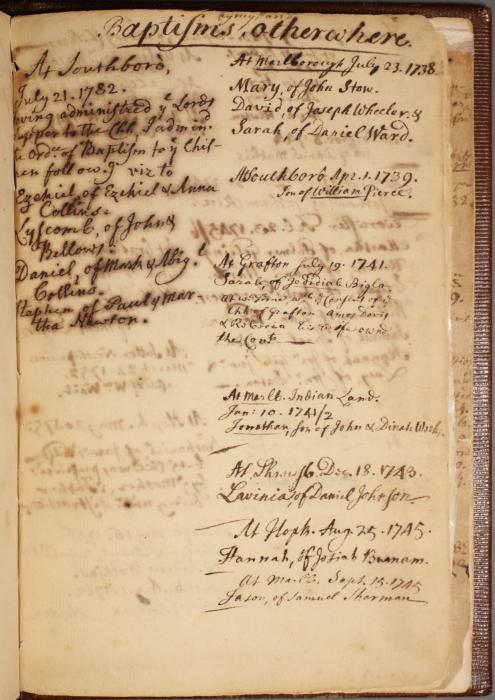 Baptisms, otherwhere.
At Southboro,
July 21. 1782.
having administed ye Lords
supper to the Chh, I admind.
ye Ordce. of Baptism to ye Chil-
ren follow.g viz to
Ezekiel of Ezekiel & Anna
Collins.
Lyscomb, of John &
Bellows.
Daniel, of Mark & Abig.l
Collins.
Stephen of Paul & Mar
tha Newton.
At Marlborough July 23. 1738
Mary, of John Stow.
David, of Joseph Wheeler. &
Sarah, of Daniel Ward.
At Southboro Apr. 1. 1739.
of William Pierce.
At Grafton July 19. 1741.
Sarah, of Jedidiah Bigla
Consent of ye
Chh of Grafton Amos Davis
& his wife ownd
the Covt
At Marlb. Indian Land.
Jan: 10. 1741/2
Jonathan, son of John & Dinah
At Shrewsb. Dec. 18. 1743.
Lavinia, of Daniel Johnson.
At Hopk. Aug. 25. 1745.
Hannah, of Josiah Burnam.
At Marlb. Sept. 15. 1745
Jason, of Samuel Sherman